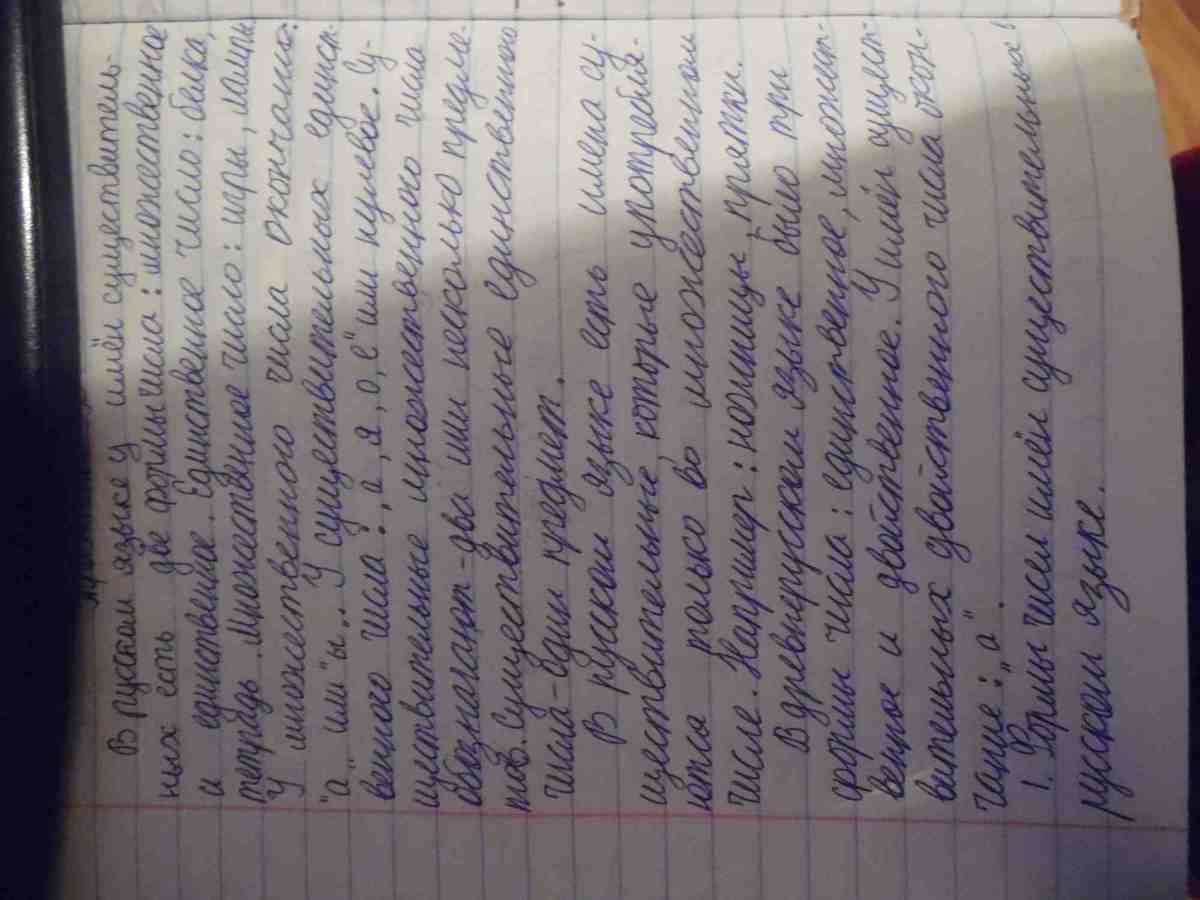 В Руском языке у имён существитель-
ных есть две формы числа : множественное
и единственное. Единственное число : белка,
тетрадь. Множественное число : игры, лампы
У множественного числа окончания:
"а" или "ы". У существительных единст-
венного числа : „а, я, о, е" или нулевое. Су-
ществительные множественного числа
обозначают - два или несколько предме-
тов. Существительные единственного
числа - один предмет.
В руском языке есть имена су-
ществительные которые употребля-
ются только во множественном
числе. Например : ножницы, прятки.
В древнирусском языке было три
формы числа : единственное, множест-
венное и двойственное. У имён сущест-
вительных двойственного числа окон-
чание : „а".
1. Формы чисел имён существительных в
руском языке.